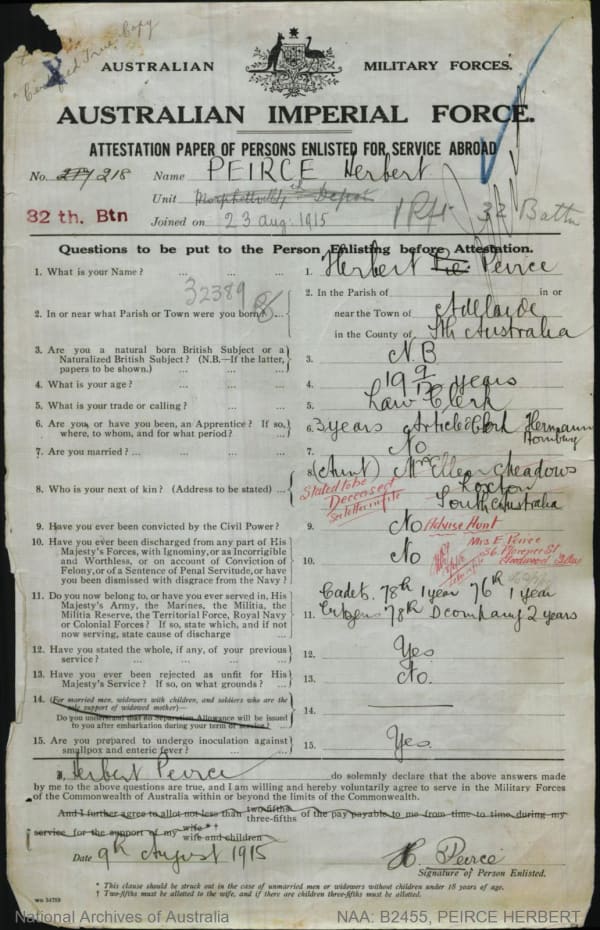 "Certified True Copy
AUSTRALIAN MILITARY FORCES.
AUSTRALIAN IMPERIAL FORCE.
ATTESTATION PAPER OF PERSONS ENLISTED FOR SERVICE ABROAD
No. 218 Name PEIRCE Herbert
Unit Morphettville Depot 32 Battn
32 th. Btn Joined on 23 Aug. 1915
Questions to be put to the Person Enlisting before Attestation.
1. What is your Name? ... ... ... 1. Herbert Peirce
32389
2. In or near what Parish or Town were you born? ... 2. In the Parish of in or
near the Town of Adelaide
in the County of Sth Australia
3. Are you a natural born British Subject or a
Naturalized British Subject? (N.B.—If the latter,
papers to be shown.) ... ... 3. N.B
4. What is your age? ... ... ... 4. 19 years
5. What is your trade or calling? ... ... 5. Law Clerk
6. Are you, or have you been, an Apprentice? If so,
where, to whom, and for what period? ... 6. 3 years Article Clerk Hermann
Homburg
7. Are you married? ... ... ... 7. No
8. Who is your next of kin? (Address to be stated) ... 8. (Aunt) Mrs Ellen Meadows
Loxton
South Australia
Stated to be
Deceased
9. Have you ever been convicted by the Civil Power? 9. No Advise Aunt
Mrs E Peirce
10. Have you ever been discharged from any part of His
Majesty's Forces, with Ignominy, or as Incorrigible
and Worthless, or on account of Conviction of
Felony, or of a Sentence of Penal Servitude, or have
you been dismissed with disgrace from the Navy? 10. No
11. Do you now belong to, or have you ever served in, His
Majesty's Army, the Marines, the Militia, the
Militia Reserve, the Territorial Force, Royal Navy
or Colonial Forces? If so, state which, and if not
now serving, state cause of discharge ... 11. Cadets. 78th 1 year 76th 1 year
Citizens 78th D company 2 years
12. Have you stated the whole, if any, of your previous
service? ... ... ... 12. Yes
13. Have you ever been rejected as unfit for His
Majesty's Service? If so, on what grounds? ... 13. No.
14. (For married men, widowers with children, and soldiers who are the
sole support of widowed mother)—
Do you understand that no Separation Allowance will be issued
to you after embarkation during your term of service? 14.
15. Are you prepared to undergo inoculation against
smallpox and enteric fever? ... ... 15. Yes.
I, Herbert Peirce do solemnly declare that the above answers made
by me to the above questions are true, and I am willing and hereby voluntarily agree to serve in the Military Forces
of the Commonwealth of Australia within or beyond the limits of the Commonwealth.
And I further agree to allot not less than two-fifths three-fifths of the pay payable to me from time to time during my
service for the support of my wife *† wife and children
Date 9th August 1915 H. Peirce
Signature of Person Enlisted.
* This clause should be struck out in the case of unmarried men or widowers without children under 18 years of age.
† Two-fifths must be allotted to the wife, and if there are children three-fifths must be allotted.
National Archives of Australia NAA: B2455, PEIRCE HERBERT